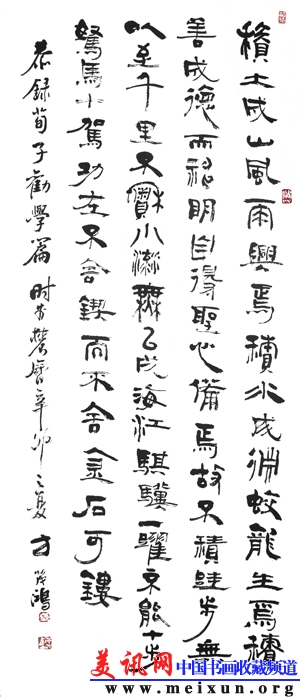 積土成山風雨興焉積水成淵蛟龍生焉積
善成德而神明自得聖心備焉故不積跬步無
以至千里不積小流無以成海江騏驥一躍不能十步
駑馬十駕功在不舍鍥而不舍金石可鏤
恭録荀子勸學篇 时在 辛卯之夏 方茂鴻
美讯网 中国书画收藏频道
www.meixun.org